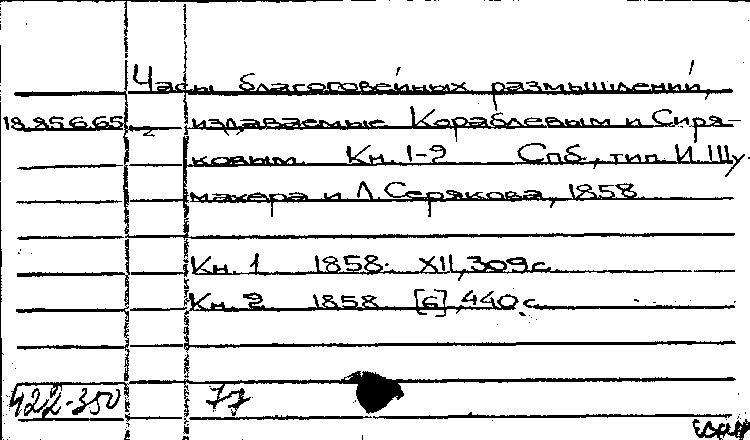 Часы благоговейных размышлений,
18.256.65 издаваемые Кораблевым и Сиря-
ковым. Кн. 1-2 Спб., тип. И. Шу
махера и Л. Серякова, 1858.
Кн. 1 1858. XII, 309 с.
Кн. 2 1858 [6], 440 с.
422-350 77